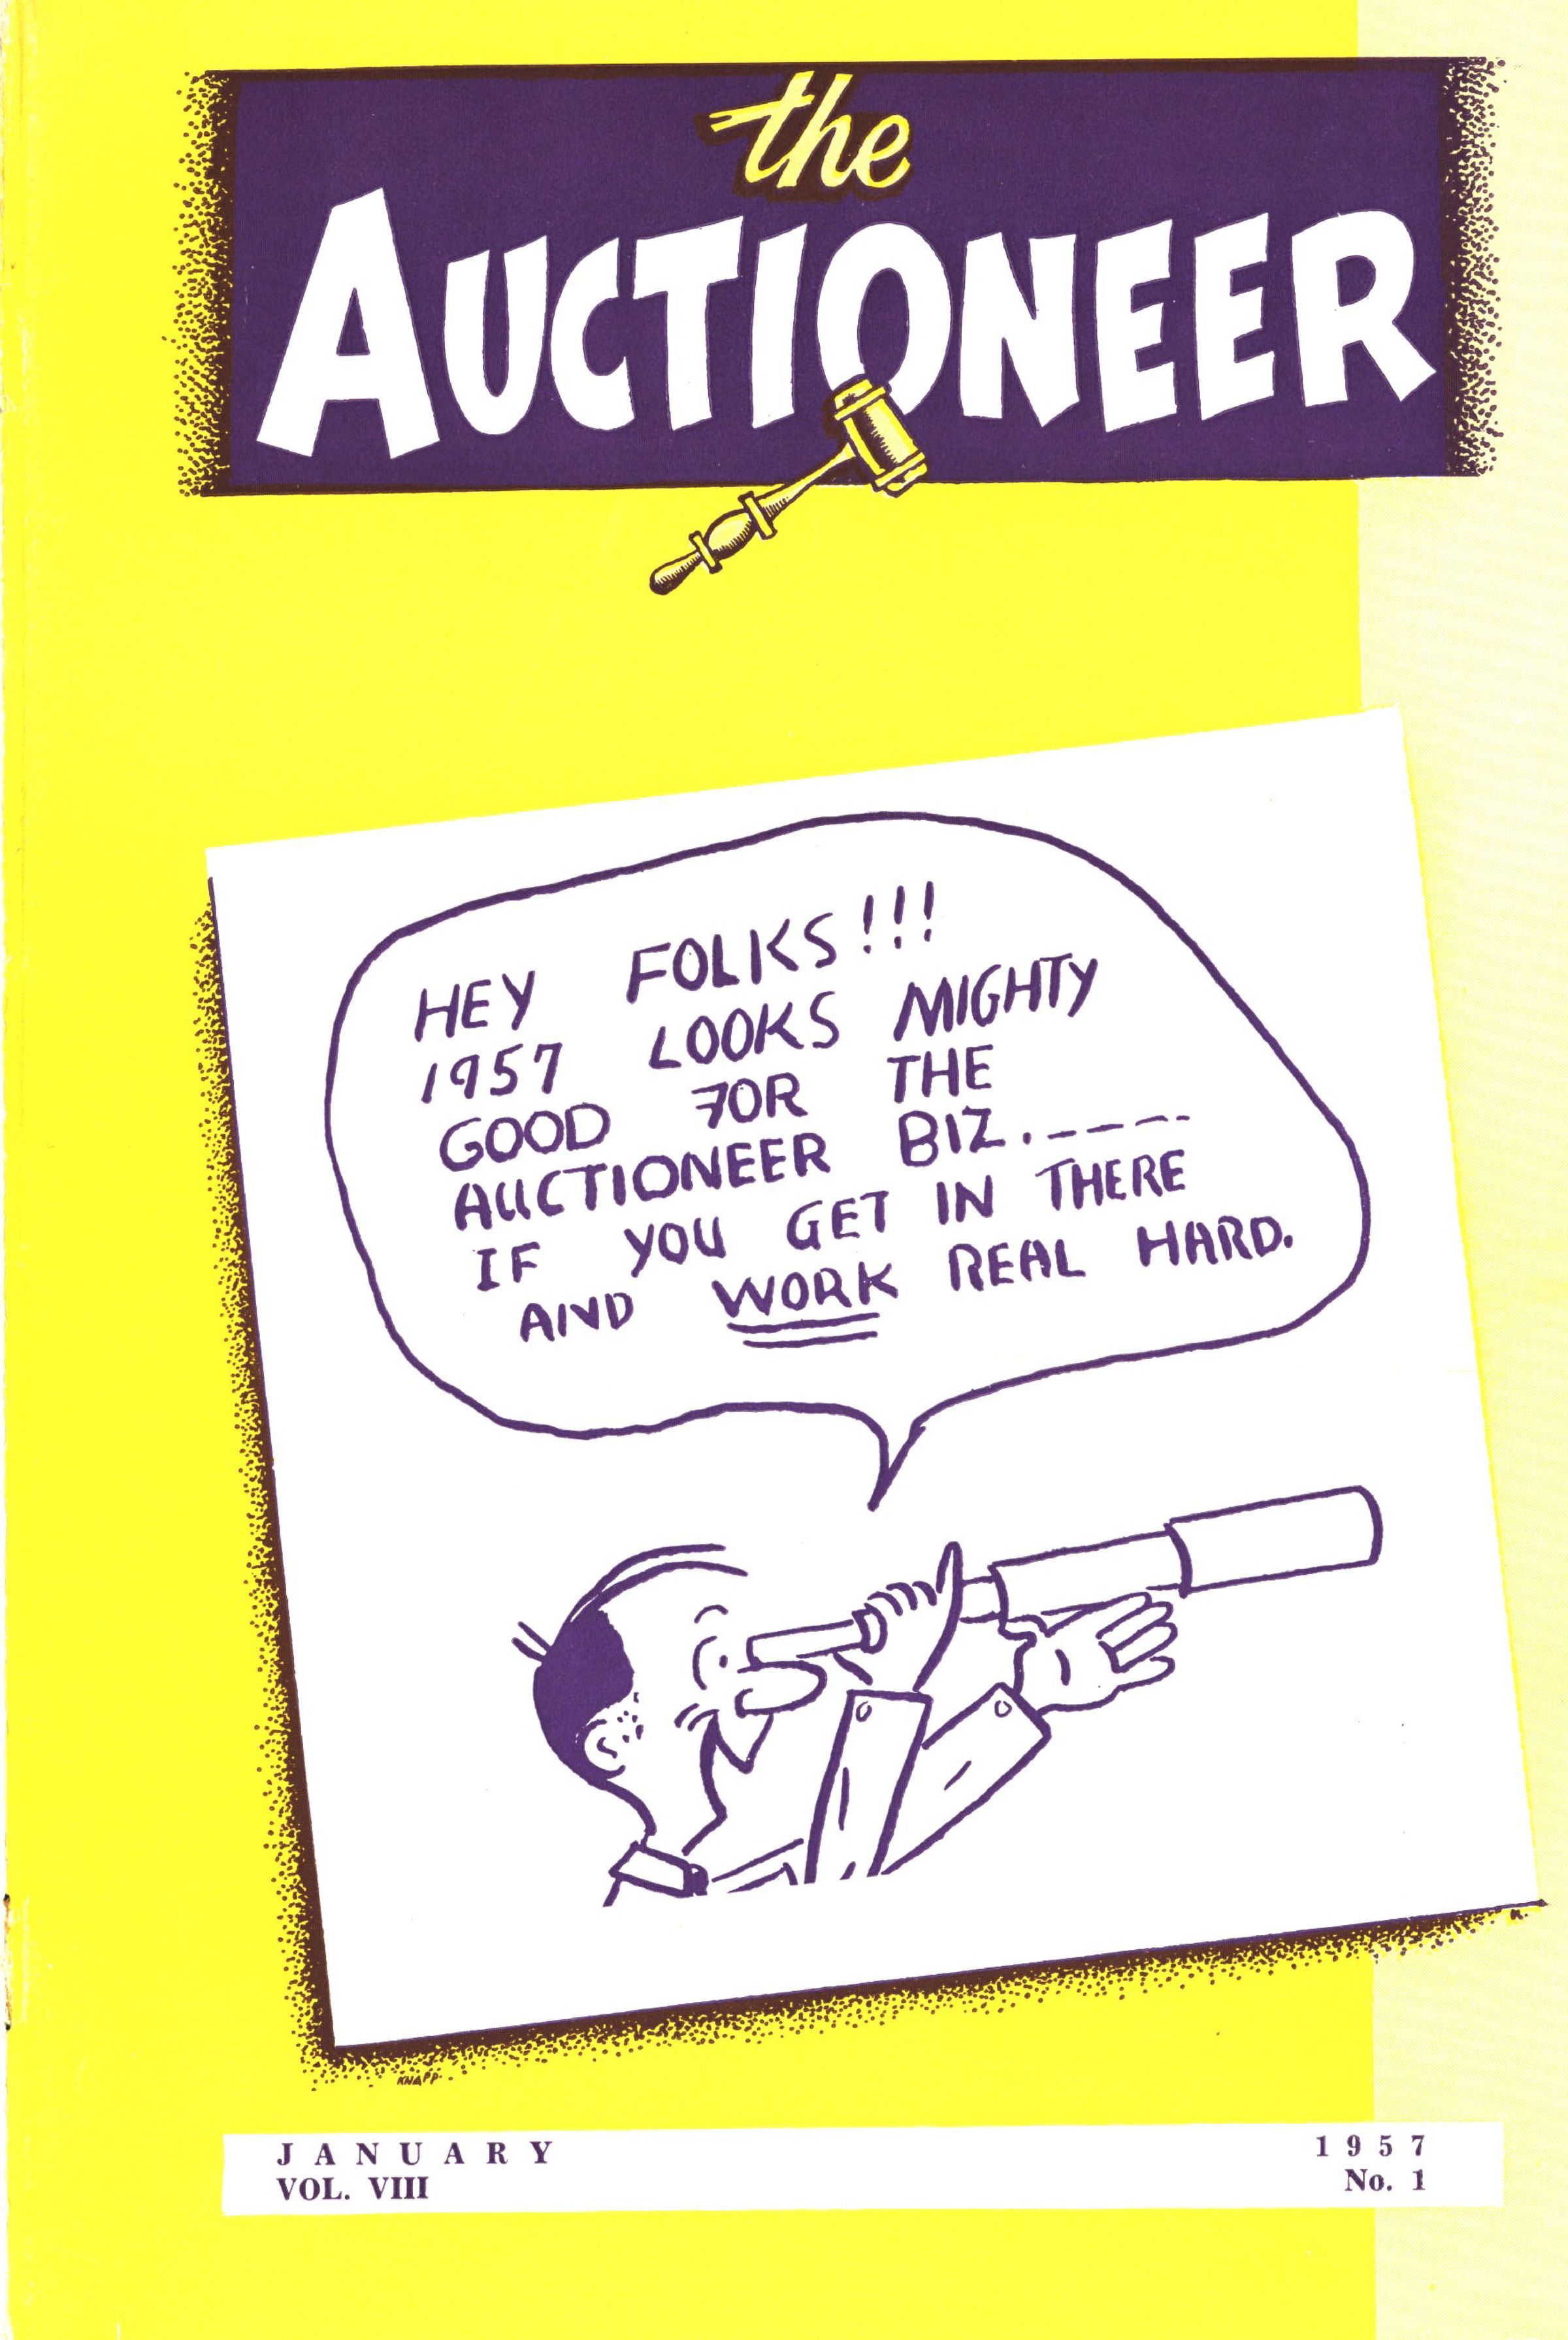 the
AUCTIONEER
HEY FOLKS!!!
1957 LOOKS MIGHTY
GOOD FOR THE
AUCTIONEER BIZ.-----
IF YOU GET IN THERE
AND WORK REAL HARD.
KNAPP
K.
JANUARY 1957
VOL. VIII No. 1